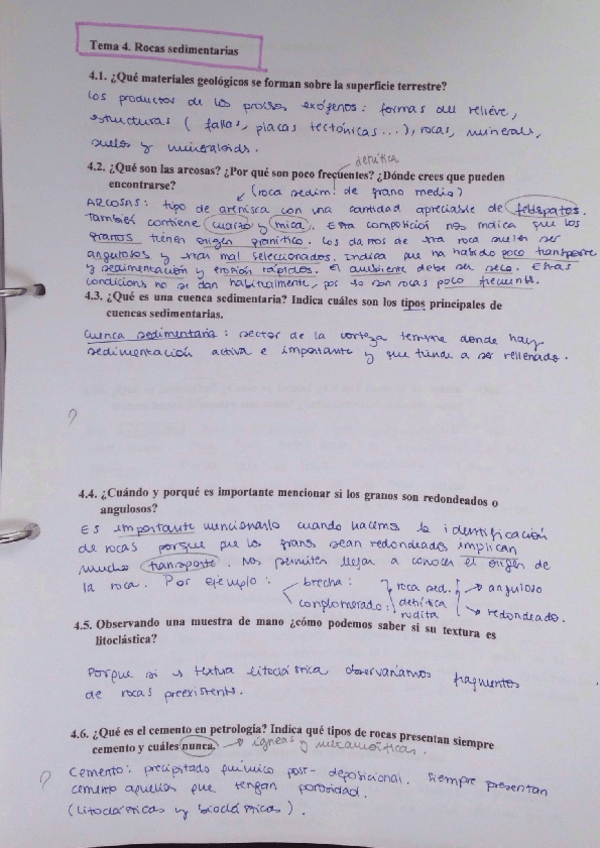 Tema 4. Rocas sedimentarias
4.1. ¿Qué materiales geológicos se forman sobre la superficie terrestre?
Los productos de los procesos exógenos: formas del relieve,
estructuras (fallas, placas tectónicas...), rocas, minerales,
suelos y mineraloides.
4.2. ¿Qué son las arcosas? ¿Por qué son poco frecuentes? ¿Dónde crees que pueden
encontrarse?
detrítica
(roca sedim. de grano medio)
ARCOSAS: tipo de arenisca con una cantidad apreciable de feldespatos.
También contiene cuarzo y mica. Esta composición nos indica que los
granos tienen origen granítico. Los clastos de esta roca suelen ser
angulosos y estar mal seleccionados. Indica que ha habido poco transporte
y sedimentación y erosión rápidos. El ambiente debe ser seco. Estas
condiciones no se dan habitualmente, por lo son rocas poco frecuentes.
4.3. ¿Qué es una cuenca sedimentaria? Indica cuáles son los tipos principales de
cuencas sedimentarias.
Cuenca sedimentaria: sector de la corteza terrestre donde hay
sedimentación activa e importante y que tiende a ser rellenado.
?
4.4. ¿Cuándo y porqué es importante mencionar si los granos son redondeados o
angulosos?
Es importante mencionarlo cuando hacemos la identificación
de rocas porque que los granos sean redondeados implican
mucho transporte. Nos permiten llegar a conocer el origen de
la roca. Por ejemplo: brecha: roca sed. → anguloso
conglomerado: detrítica
rudita → redondeado.
4.5. Observando una muestra de mano ¿cómo podemos saber si su textura es
litoclástica?
Porque si es textura litoclástica observaríamos fragmentos
de rocas preexistentes.
4.6. ¿Qué es el cemento en petrología? Indica qué tipos de rocas presentan siempre
cemento y cuáles nunca. → ígneas y metamórficas.
? Cemento: precipitado químico post-deposicional. Siempre presentan
cemento aquellas que tengan porosidad.
(litoclásticas y bioclásticas).